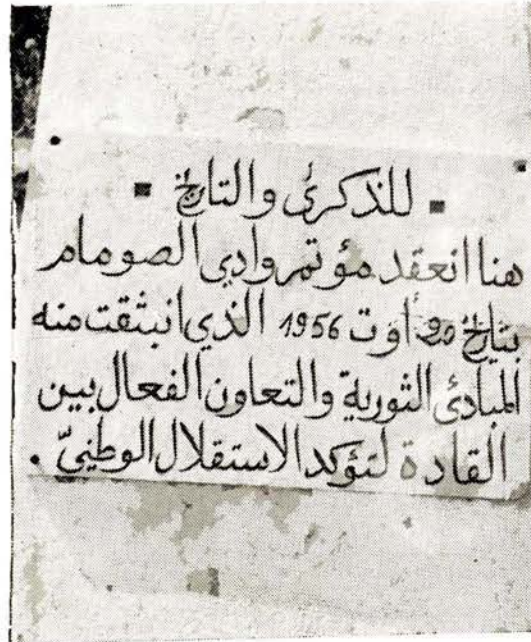 ▪ للذكرى والتاريخ ▪
هنا انعقد مؤتمر وادي الصومام
بتاريخ 20 أوت 1956 الذي انبثقت منه
المبادئ الثورية والتعاون الفعال بين
القادة لتؤكد الاستقلال الوطنيّ .